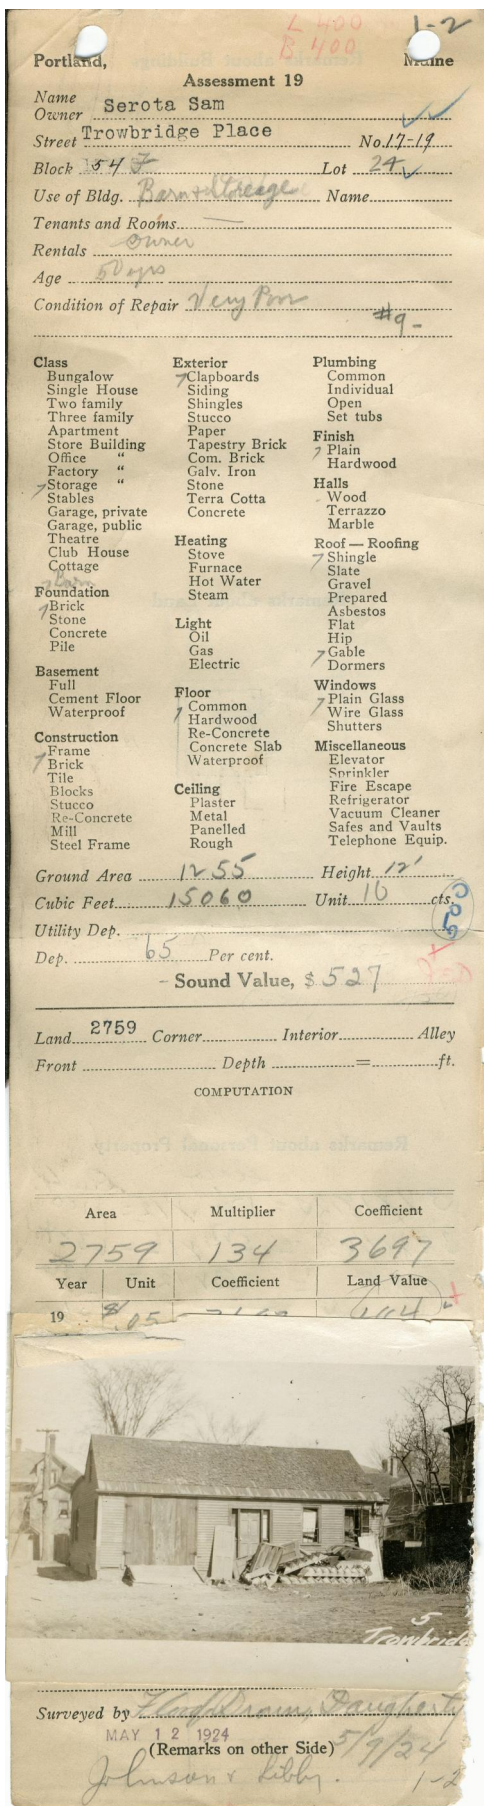 L 400
B 400
1-2
Portland, Maine
Assessment 19
Name
Owner Serota Sam
Street Trowbridge Place No. 17-19
Block 54 F Lot 24
Use of Bldg. Barn & Storeage Name
Tenants and Rooms —
Rentals Owner
Age 50 yrs
Condition of Repair Very Poor
#9-
Class
Bungalow
Single House
Two family
Three family
Apartment
Store Building
Office "
Factory "
Storage "
Stables
Garage, private
Garage, public
Theatre
Club House
Cottage
Barn
Foundation
Brick
Stone
Concrete
Pile
Basement
Full
Cement Floor
Waterproof
Construction
Frame
Brick
Tile
Blocks
Stucco
Re-Concrete
Mill
Steel Frame
Exterior
Clapboards
Siding
Shingles
Stucco
Paper
Tapestry Brick
Com. Brick
Galv. Iron
Stone
Terra Cotta
Concrete
Heating
Stove
Furnace
Hot Water
Steam
Light
Oil
Gas
Electric
Floor
Common
Hardwood
Re-Concrete
Concrete Slab
Waterproof
Ceiling
Plaster
Metal
Panelled
Rough
Plumbing
Common
Individual
Open
Set tubs
Finish
Plain
Hardwood
Halls
Wood
Terrazzo
Marble
Roof — Roofing
Shingle
Slate
Gravel
Prepared
Asbestos
Flat
Hip
Gable
Dormers
Windows
Plain Glass
Wire Glass
Shutters
Miscellaneous
Elevator
Sprinkler
Fire Escape
Refrigerator
Vacuum Cleaner
Safes and Vaults
Telephone Equip.
Ground Area 1255 Height 12'
Cubic Feet 15060 Unit 10 cts.
Utility Dep.
Dep. 65 Per cent.
- Sound Value, $ 527
Land 2759 Corner Interior Alley
Front Depth = ft.
COMPUTATION
Area Multiplier Coefficient
2759 134 3697
Year Unit Coefficient Land Value
19 .05
5
Trowbridge
Surveyed by Daugherty
MAY 12 1924
5/9/24
(Remarks on other Side)
Johnson & Libby.
1-2